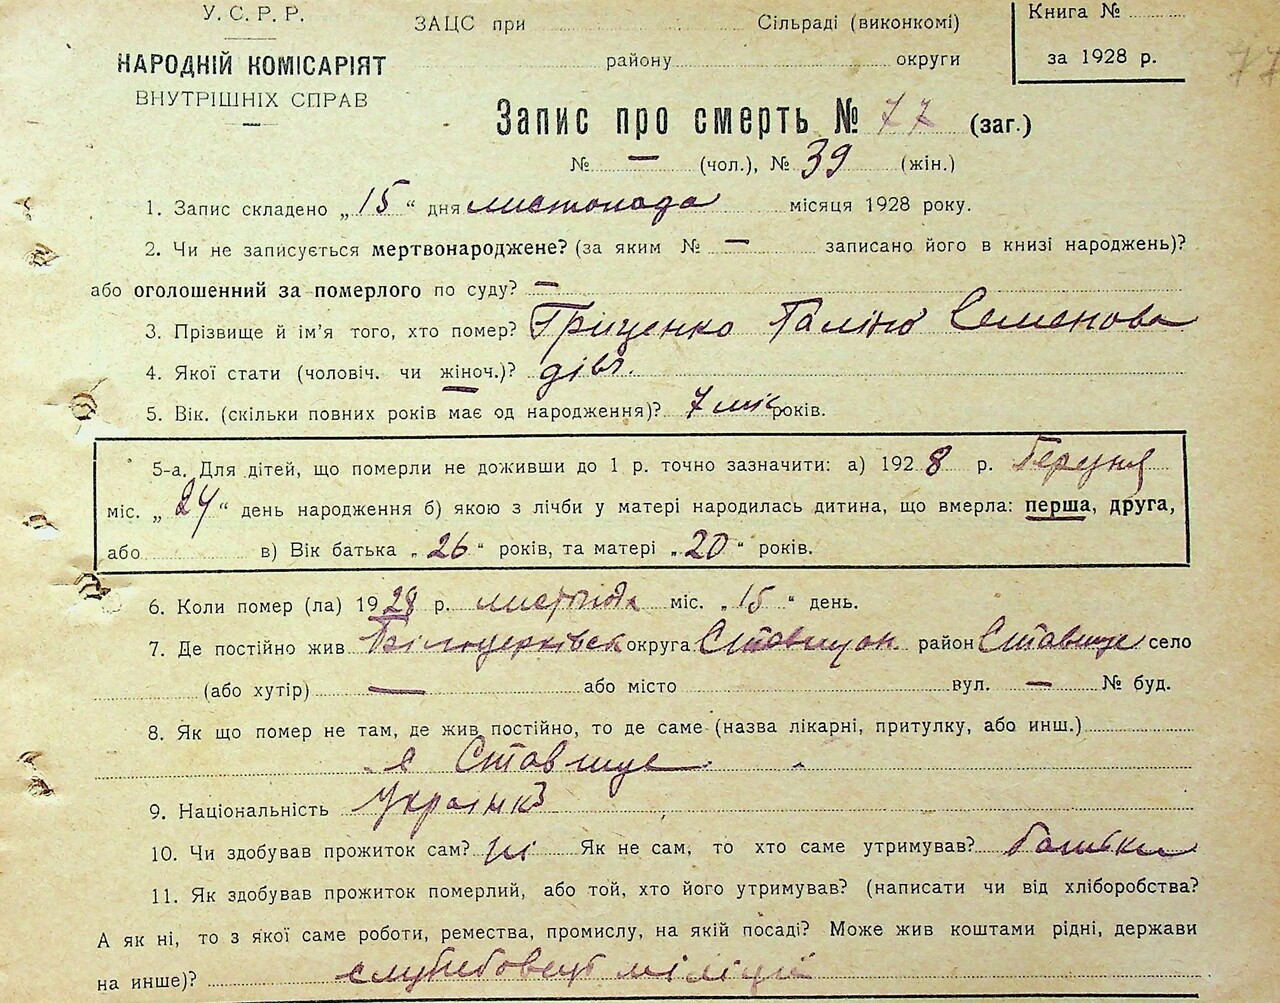 У. С. Р. Р.
НАРОДНІЙ КОМІСАРІЯТ
ВНУТРІШНІХ СПРАВ
ЗАЦС при Сільраді (виконкомі)
району округи
Книга №
за 1928 р.
77
Запис про смерть № 77 (заг.)
№ — (чол.), № 39 (жін.)
1. Запис складено „15“ дня листопада місяця 1928 року.
2. Чи не записується мертвонароджене? (за яким № — записано його в книзі народжень)?
або оголошенний за померлого по суду? —
3. Прізвище й ім’я того, хто помер? Гриценко Галина Семенова
4. Якої стати (чоловіч. чи жіноч.)? дівч.
5. Вік. (скільки повних років має од народження)? 7 міс років.
5-а. Для дітей, що померли не доживши до 1 р. точно зазначити: а) 1928 р.
міс. „24“ день народження б) якою з лічби у матері народилась дитина, що вмерла: перша, друга,
або в) Вік батька „26“ років, та матері „20“ років.
6. Коли помер (ла) 1928 р. листопада міс. „15“ день.
7. Де постійно жив Білоцерківск округа Ставищан район Ставище село
(або хутір) — або місто вул. — № буд.
8. Як що помер не там, де жив постійно, то де саме (назва лікарні, притулку, або инш.)
Ставище
9. Національність Українка
10. Чи здобував прожиток сам? ні Як не сам, то хто саме утримував? батьки
11. Як здобував прожиток померлий, або той, хто його утримував? (написати чи від хліборобства?
А як ні, то з якої саме роботи, ремества, промислу, на якій посаді? Може жив коштами рідні, держави
на инше)? міліції